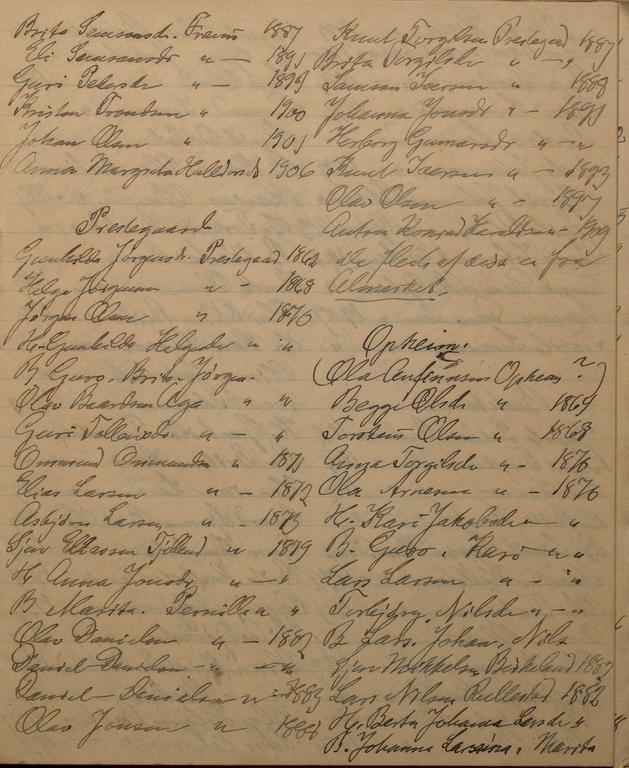 Brita Samsonsdr. 1887
Eli Samsonsdr " — 1893
Guri Petersdr " — 1899
Kristen Trondsen " 1900
Johan Olsen " 1901
Anna Margreta Halldorsdr 1906
Prestegaard
Gunhilda Jørgensdr. Prestegaard 1862
Helge Jørgensen " — 1868
Jørgen Olsen " 1870
H. Gunhilda Helgesdr " "
B Guro, Brita, Jørgen.
Olav Baardsen Aga " "
Guri Tolleivsdr. " — "
Omsmund Omsmundsen " 1871
Elias Larsen " — 1872
Asbjørn Larsen " — 1873
Sjur Eliassen Tjelland " 1879
H Anna Jonsdr " — "
B Marita. Pernilla " "
Olav Danielsen " — 1882
Daniel Danielsen — " — "
Daniel Danielsen " 1883
Olav Jonsen " 1888
Knut Torgilsen Prestegaard 1887
Brita Torgilsdr " — "
Samson Iversen " 1888
Johanna Jonsdr " — 1890
Herborg Gunnarsdr " — "
Knut Iversen " — 1893
Olav Olsen " — 1897
Anton Konrad Haraldsen " — 1909
de fleste af disse er fra
Almerket.
Opheim.
(Ola Opheim?)
Begga Olsdr " 1867
Torstein Olsen " 1868
Anna Torgilsdr " — 1876
Ola Arnesen " — 1876
H. Kari Jakobsdr — " "
B. Guro, Kari — " "
Lars Larsen " — "
Torbjørg Nilsdr " — "
B Lars. Johan, Nils
Sjur Birkeland 1882
Lars Nilsen Rullestad 1882
H. Berta Johanna Larsdr "
B. Johanna, Marita